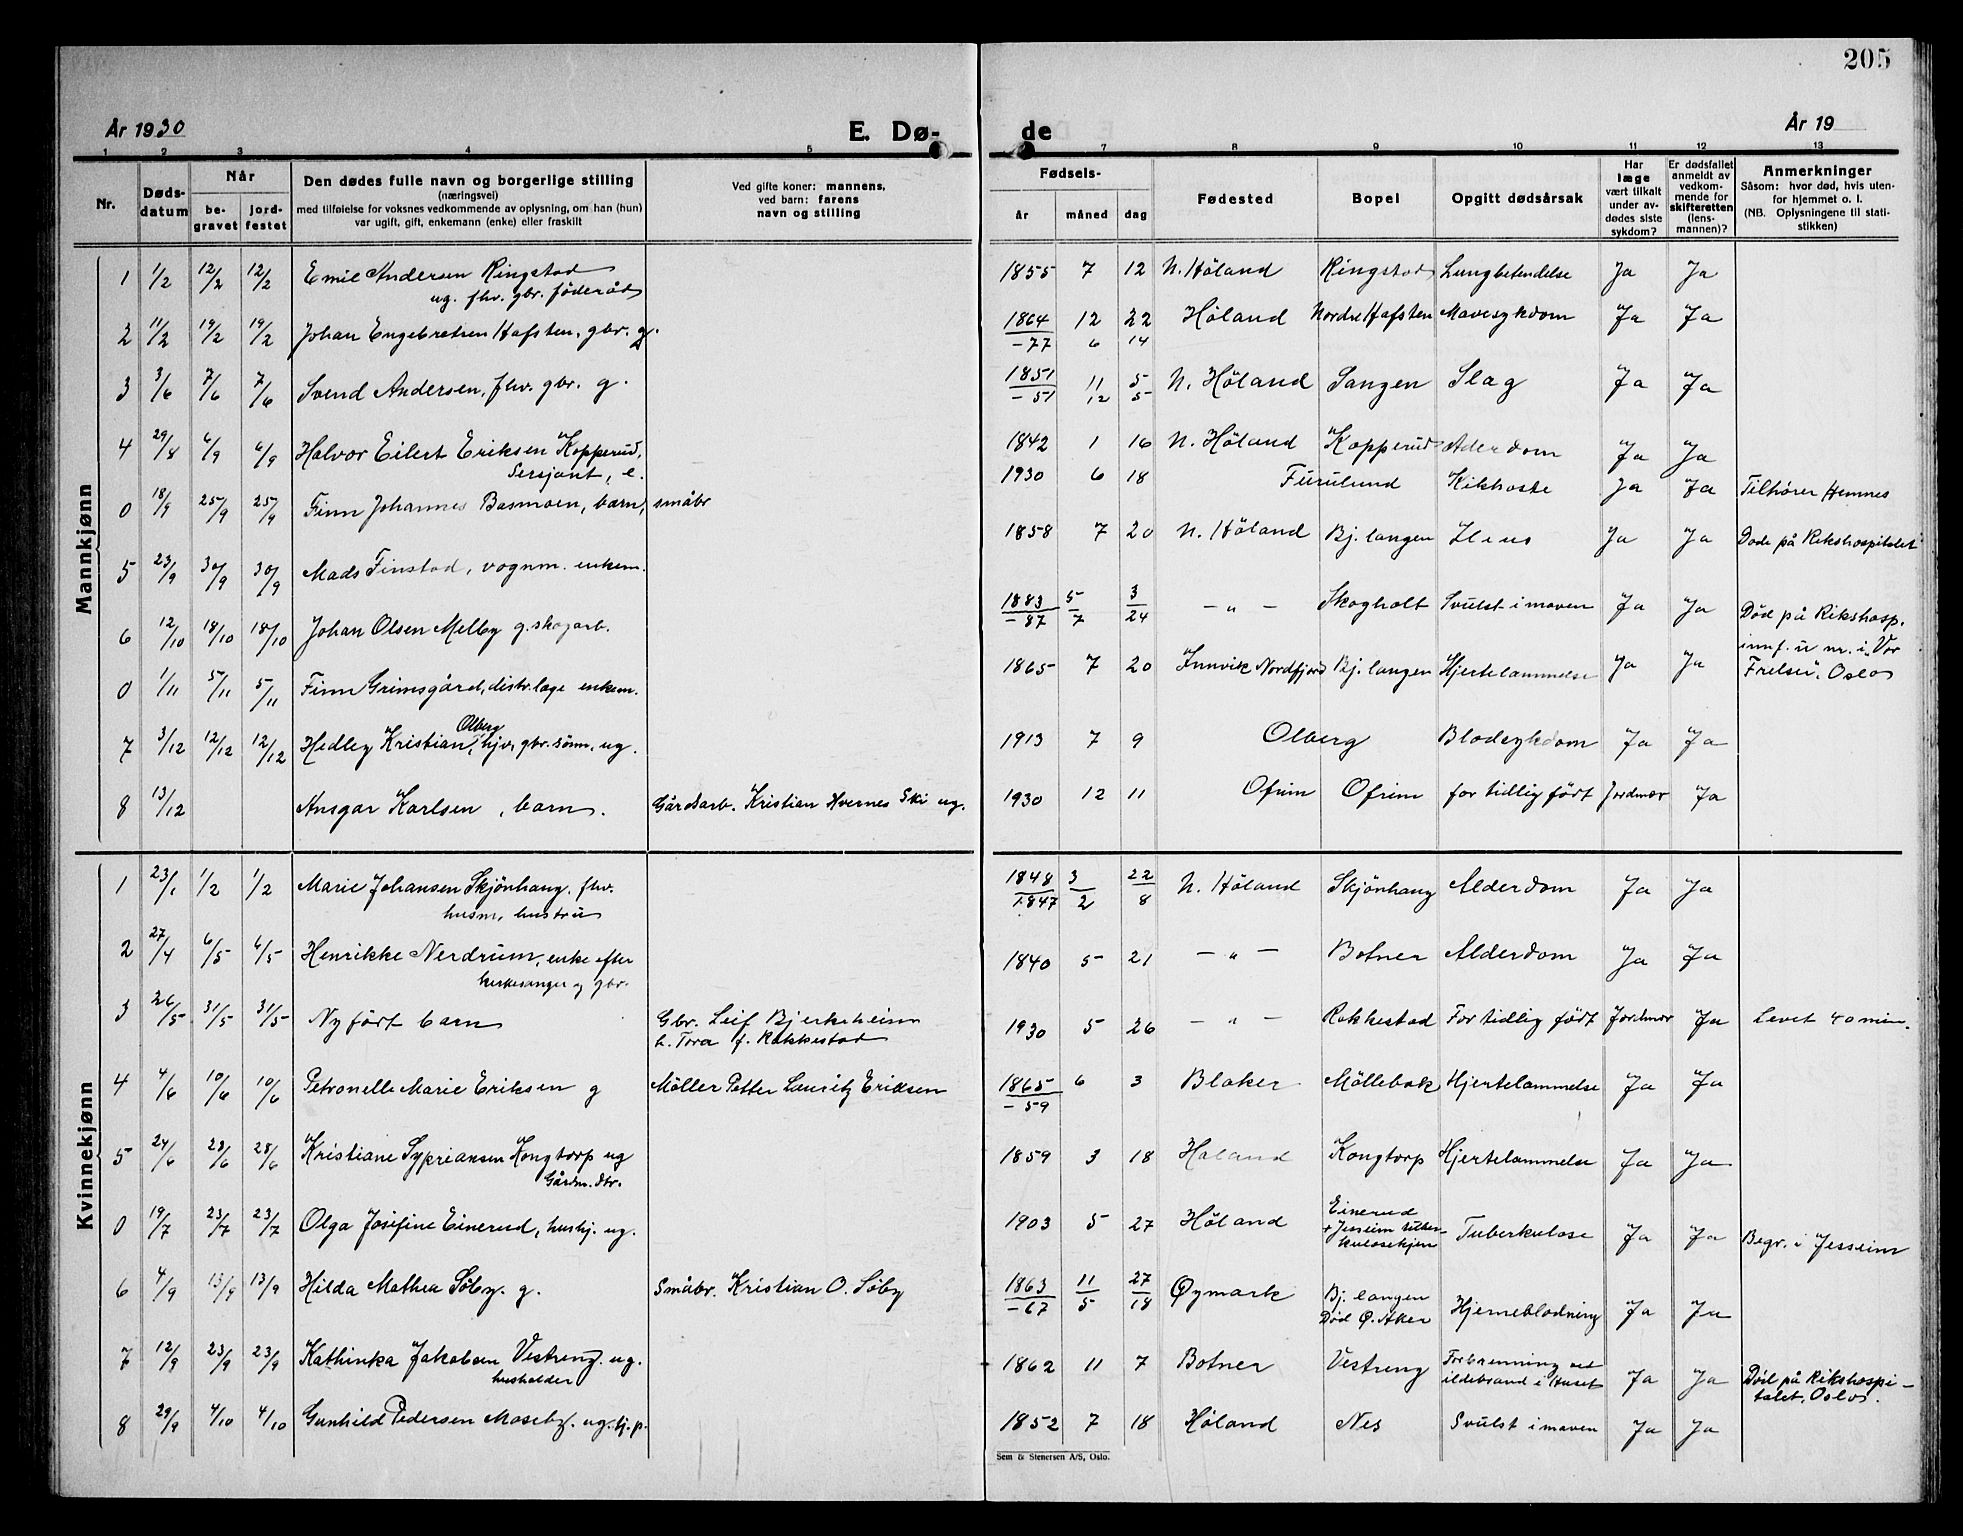 205
År 1930 E. Dø- de År 19
1 2 3 4 5 7 8 9 10 11 12 13
Nr. Døds-datum Når be-gravet jord-festet Den dødes fulle navn og borgerlige stilling (næringsvei) med tilføielse for voksnes vedkommende av oplysning, om han (hun) var ugift, gift, enkemann (enke) eller fraskilt Ved gifte koner: mannens, ved barn: farens navn og stilling Fødsels- år måned dag Fødested Bopel Opgitt dødsårsak Har læge vært tilkalt under av-dødes siste sykdom? Er dødsfallet anmeldt av vedkom-mende for skifteretten (lens-mannen)? Anmerkninger Såsom: hvor død, hvis uten-for hjemmet o. l. (NB. Oplysningene til stati-stikken)
Mannkjønn
1 1/2 12/2 12/2 Emil Andersen Ringstad ug. fhv. gbr. föderåd 1855 7 12 N. Höland Ringstad Lungbetendelse Ja Ja
2 11/2 19/2 19/2 Johan Engebretsen Hafsten, gbr. g. 1864 12 22 Höland Nordre Hafsten Mavesykdom Ja Ja
-77 6 14
3 3/6 7/6 7/6 Svend Andersen, fhv. gbr. g. 1851 11 5 N. Höland Langen Slag Ja Ja
-51 12 5
4 29/8 6/9 6/9 Halvor Eilert Eriksen Kopperud, Sersjant, e. 1842 1 16 N. Höland Kopperud Alderdom Ja Ja
0 18/9 25/9 25/9 Finn Johannes Basmoen, barn, småbr 1930 6 18 Furulund Kikhoste Ja Ja Tilhører Hemnes
5 23/9 30/9 30/9 Mads Finstad, vognm. enkem. 1858 7 20 N. Höland Bj. langen Ileus Ja Ja Døde på Rikshospitalet
6 12/10 18/10 18/10 Johan Olsen Melby g. skogarb. 1883 5 3 - " - Skogholt Svulst i maven Ja Ja Död på Rikshosp.
-87 7 24
0 1/11 5/11 5/11 Finn Grimsgård, distr.læge enkem. 1865 7 20 Innvik Nordfjord Bj. langen Hjertelammelse Ja Ja innf. u nr. i "Vor Frelser", Oslo
7 3/12 12/12 12/12 Hedley Kristian Olberg, hjv, gbr. sönn, ug. 1913 7 9 Olberg Blodsykdom Ja Ja
8 13/12 Ansgar Karlsen, barn. Gårdsarb. Kristian Hvernes Ski ug. 1930 12 11 Ofrim Ofrim for tidlig född Jordmor Ja
Kvinnekjønn
1 23/1 1/2 1/2 Marie Johansen Skjönhaug. fhv. husm. hustru 1848 3 22 N. Höland Skjönhaug Alderdom Ja Ja
1847 2 8
2 27/4 6/5 6/5 Henrikke Nerdrum, enke efter kirkesanger og gbr. 1840 5 21 - " - Botner Alderdom Ja Ja
3 26/5 31/5 31/5 Nyfört barn Gbr. Leif Bjerkeheim h. Tora f. Rakkestad 1930 5 26 - " - Rakkestad For tidlig född Jordmor Ja Levet 40 min.
4 4/6 10/6 10/6 Petronelle Marie Eriksen g Möller Petter Lauritz Eriksen 1865 6 3 Blaker Möllebak Hjertelammelse Ja Ja
-59
5 24/6 28/6 28/6 Kristiane Sypriansen Kongtorp ug Gårdm. dtr. 1859 3 18 Höland Kongtorp Hjertelammelse Ja Ja
0 19/7 23/7 23/7 Olga Josefine Einerud, hushj. ug. 1903 5 27 Höland Einerud + Jesseim tuberkulosehjem Tuberkulose Ja Ja Begr. i Jesseim
6 4/9 13/9 13/9 Hilda Mathea Söby. g. Småbr. Kristian O. Söby 1863 11 27 Øymark Bj. langen Död Ø. Aker Hjerneblødning Ja Ja
-67 5 18
7 12/9 23/9 23/9 Kathinka Jakobsen Vestreng. ug. husholder 1862 11 7 Botner Vestreng Forbrenning ved ildebrand i Huset Ja Ja Död på Rikshospi-talet, Oslo.
8 29/9 4/10 4/10 Gunhild Pedersen Moseby. ug. hj. p. 1852 7 18 Höland Nes Svulst i maven Ja Ja
Sem & Stenersen A/S, Oslo.